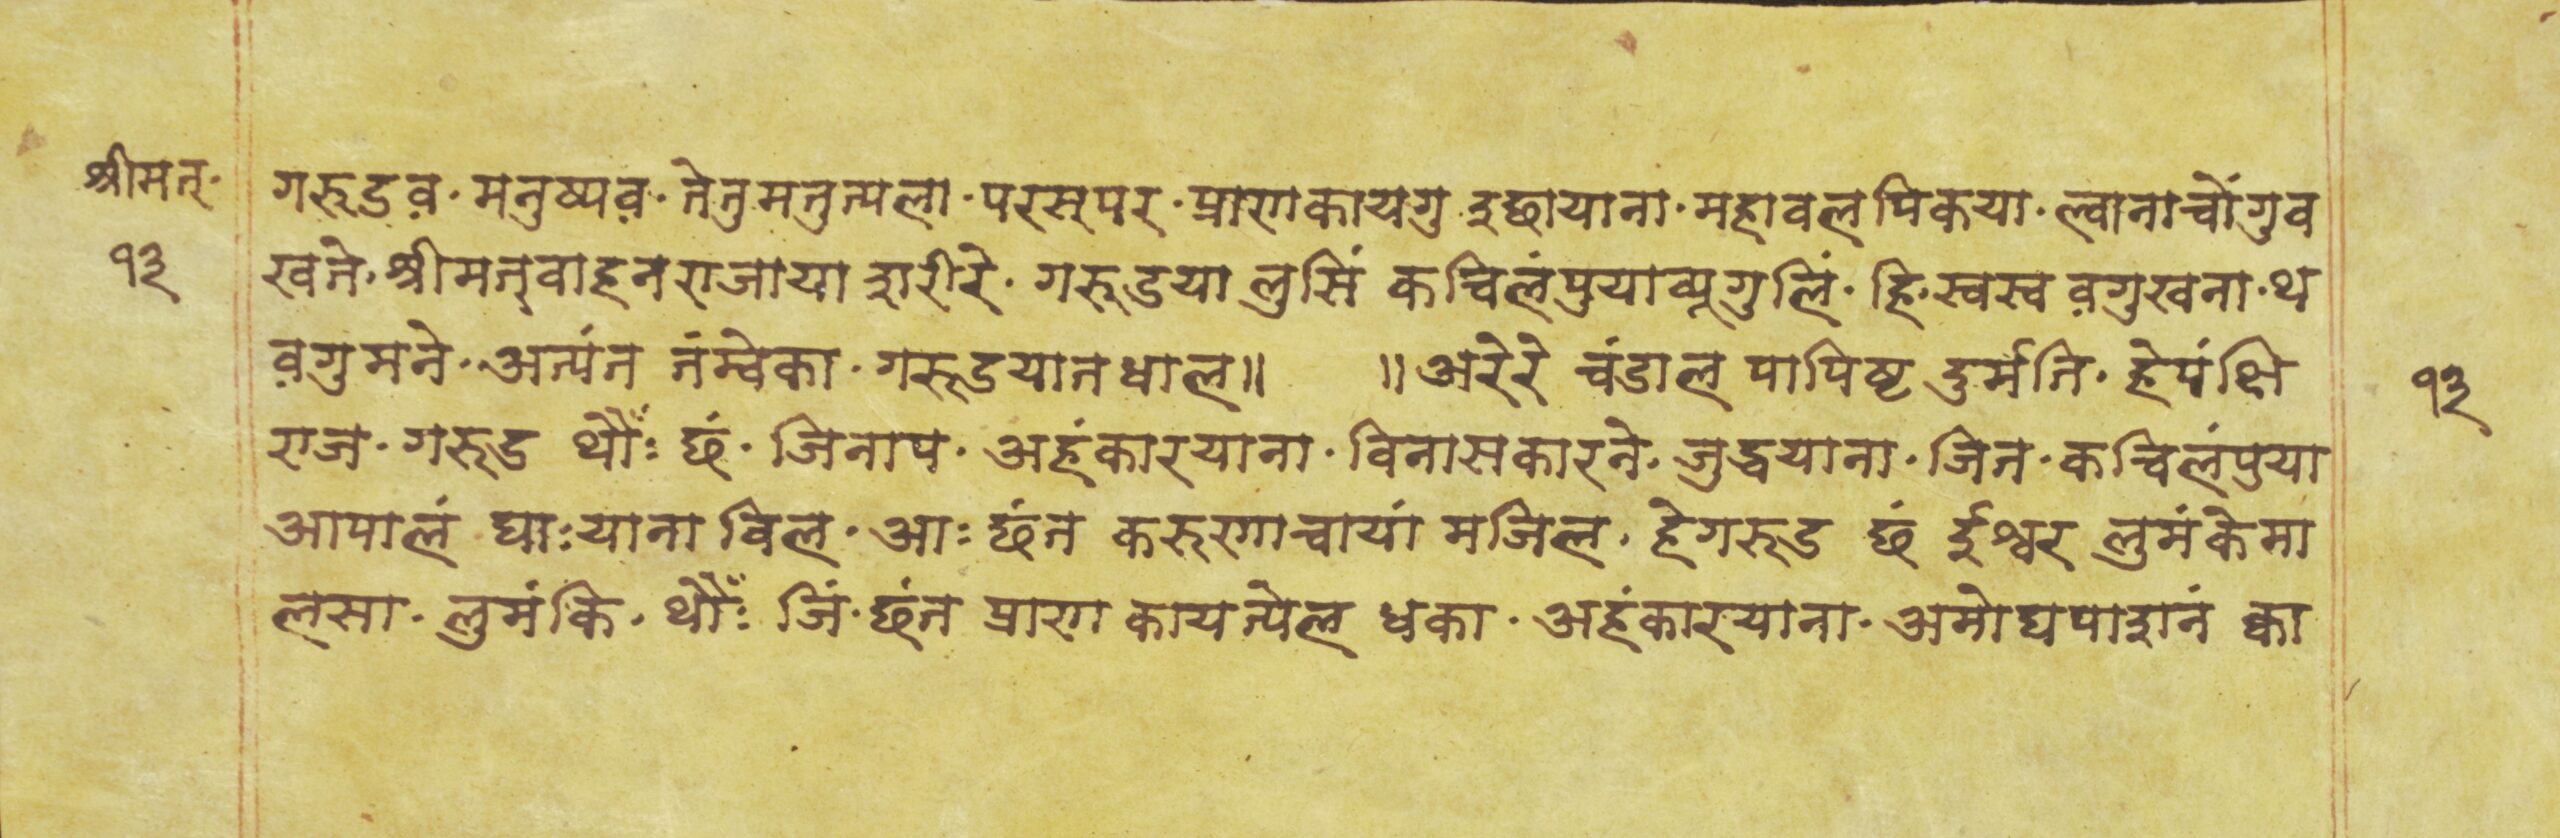 श्रीमत्· गरूडव़· मनुष्यव़· तेतुमतुत्यला· परस्पर· प्राणकायगु इछायाना· महावलपिकया· ल्वानाचोंगुव
१३ खते· श्रीमत्वाहनराजाया शरीरे· गरूडया लुसिं कचिलंपुयाव्यूगुलिं· हि· स्वस्व व़गुखना· थ
व़गुमने· अत्यंत तंम्वेका· गरूडयातधाल॥ ॥अरेरे चंडाल पापिष्ट दुर्मति· हेपंक्षि १३
राज· गरूड थौंः छं· जिनाप· अहंकारयाना· विनासकारने· जुद्धयाना· जित· कचिलंपुया
आपालं घाःयाना विल· आः छंत करूणाचायां मजिल· हेगरूड छं ईश्वर लुमंकेमा
ल्सा· लुमंकि· थौंः जिं· छंत प्राण कायत्येल धका· अहंकारयाना· अमोघपाशनं क्वा